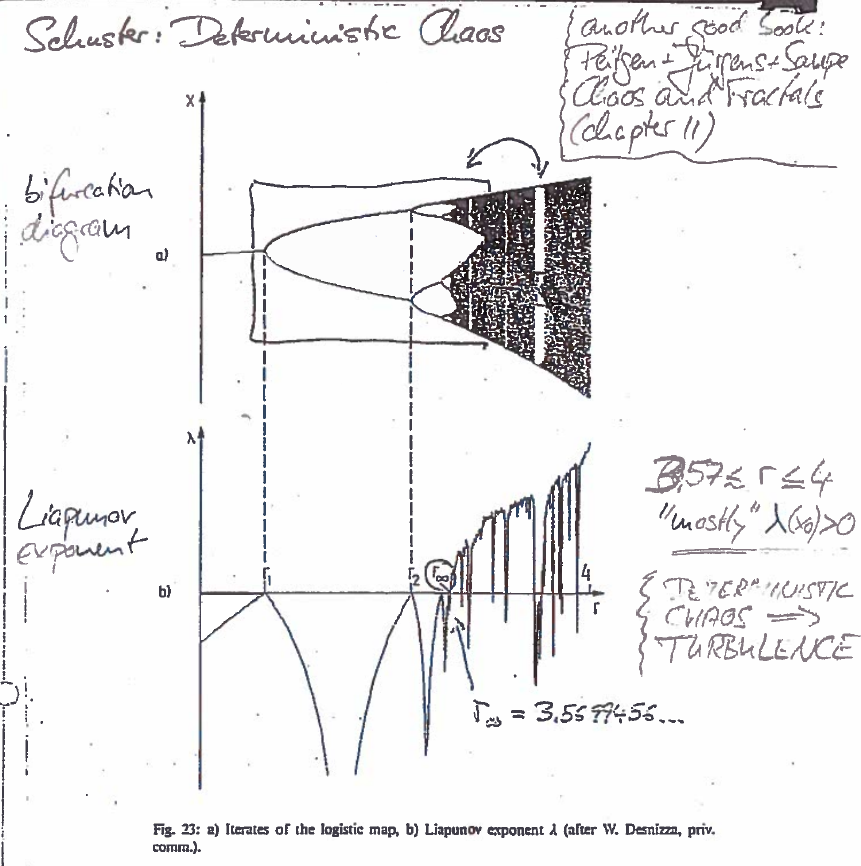 Schuster: Deterministic Chaos
another good book:
Peitgen + Jürgens + Saupe
Chaos and Fractals
(chapter 11)
x
bifurcation
diagram
a)
λ
Liapunov
exponent
b)
r1
r2
r∞
4
r
3,57 ≲ r ≤ 4
"mostly" λ(x₀)>0
DETERMINISTIC
CHAOS ⇒
TURBULENCE
r∞ = 3.5699456...
Fig. 23: a) Iterates of the logistic map, b) Liapunov exponent λ (after W. Desnizza, priv.
comm.).